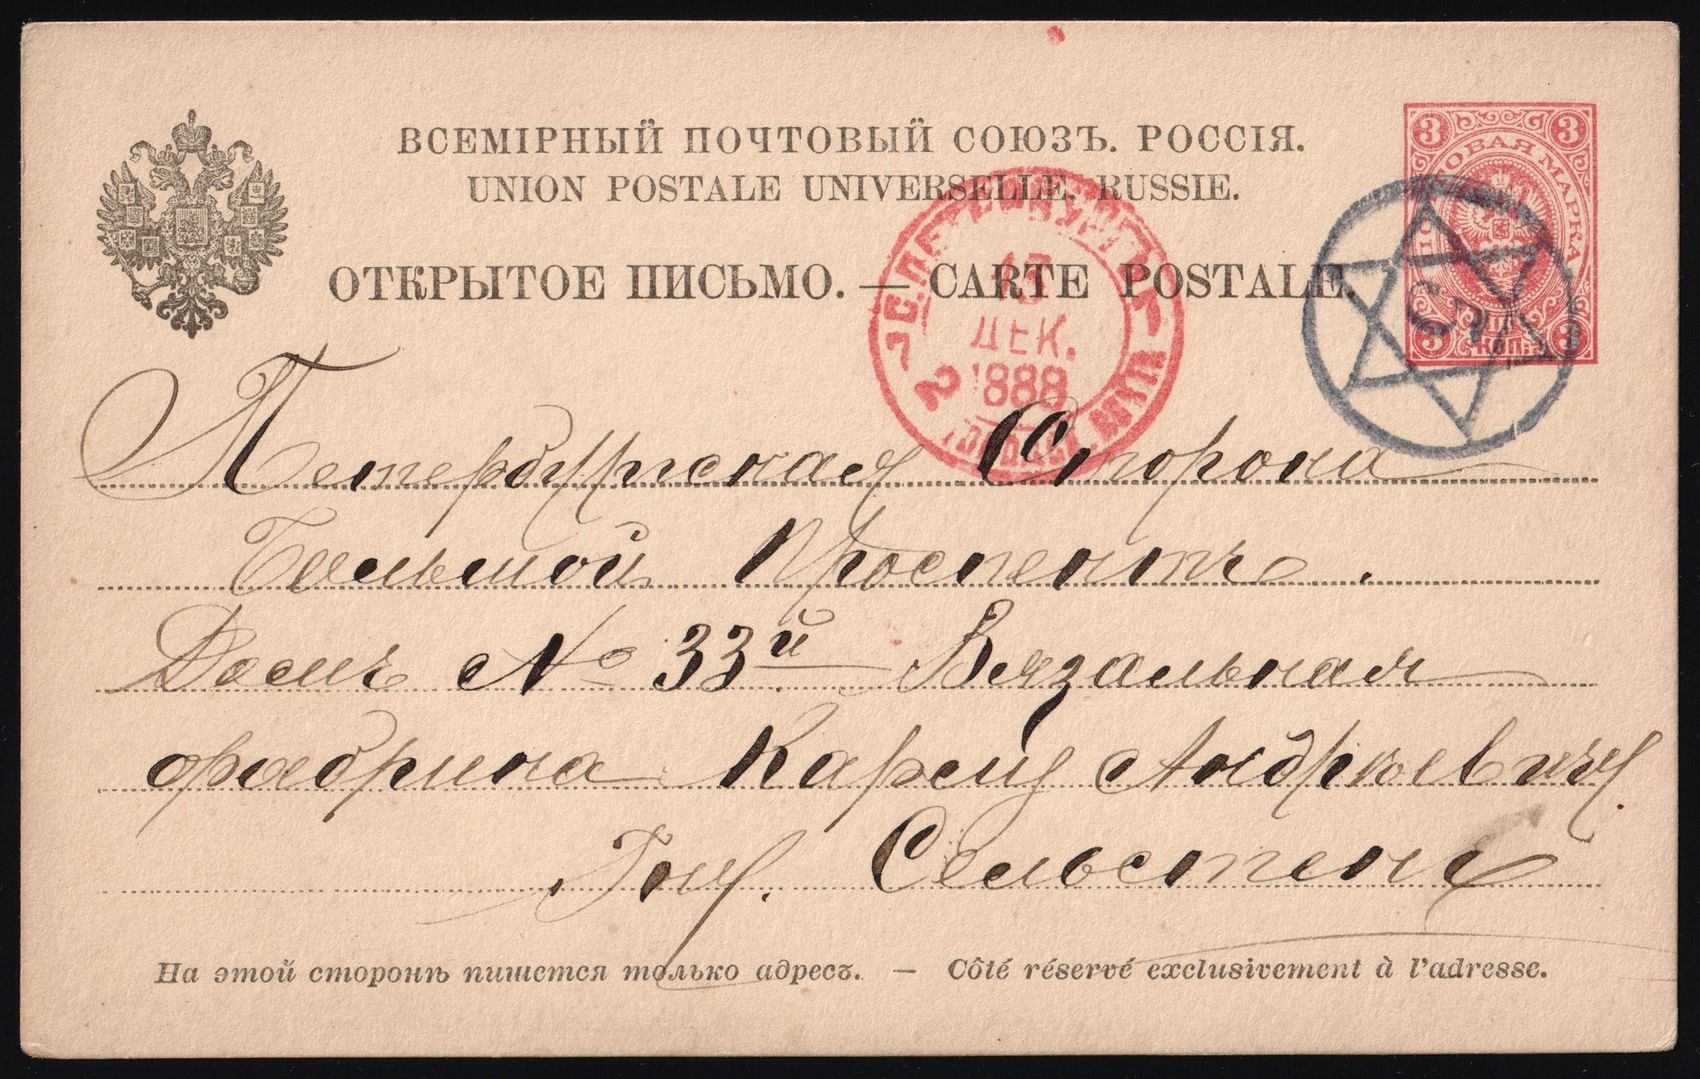 ВСЕМІРНЫЙ ПОЧТОВЫЙ СОЮЗЪ. РОССІЯ.
UNION POSTALE UNIVERSELLE. RUSSIE.
ОТКРЫТОЕ ПИСЬМО. — CARTE POSTALE.
3 3
ПОЧТОВАЯ МАРКА
3 3
С.ПЕТЕРБУРГЪ
ДЕК.
1888
2
5
Петербургская Сторона
Большой Проспектъ.
Домъ № 33й Вязальная
фабрика Карлу Андреевичу
Гну. Сельстенъ
На этой сторонѣ пишется только адресъ. — Côté réservé exclusivement à l'adresse.